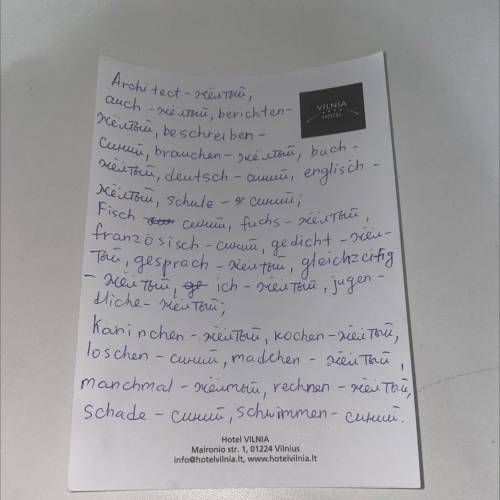 Architect - жёлтый,
auch - жёлтый, berichten -
VILNIA
HOTEL
жёлтый, beschreiben -
синий, brauchen - жёлтый, buch -
жёлтый, deutsch - синий, englisch -
жёлтый, schule - синий;
Fisch синий, fuchs - жёлтый,
französisch - синий, gedicht - жёл-
тый, gesprach - жёлтый, gleichzeitig
- жёлтый, ich - жёлтый, jugen-
dliche - жёлтый;
Kaninchen - жёлтый, kochen - жёлтый,
loschen - синий, madchen - жёлтый,
manchmal - жёлтый, rechnen - жёлтый,
schade - синий, schwimmen - синий.
Hotel VILNIA
Maironio str. 1, 01224 Vilnius
info@hotelvilnia.lt, www.hotelvilnia.lt